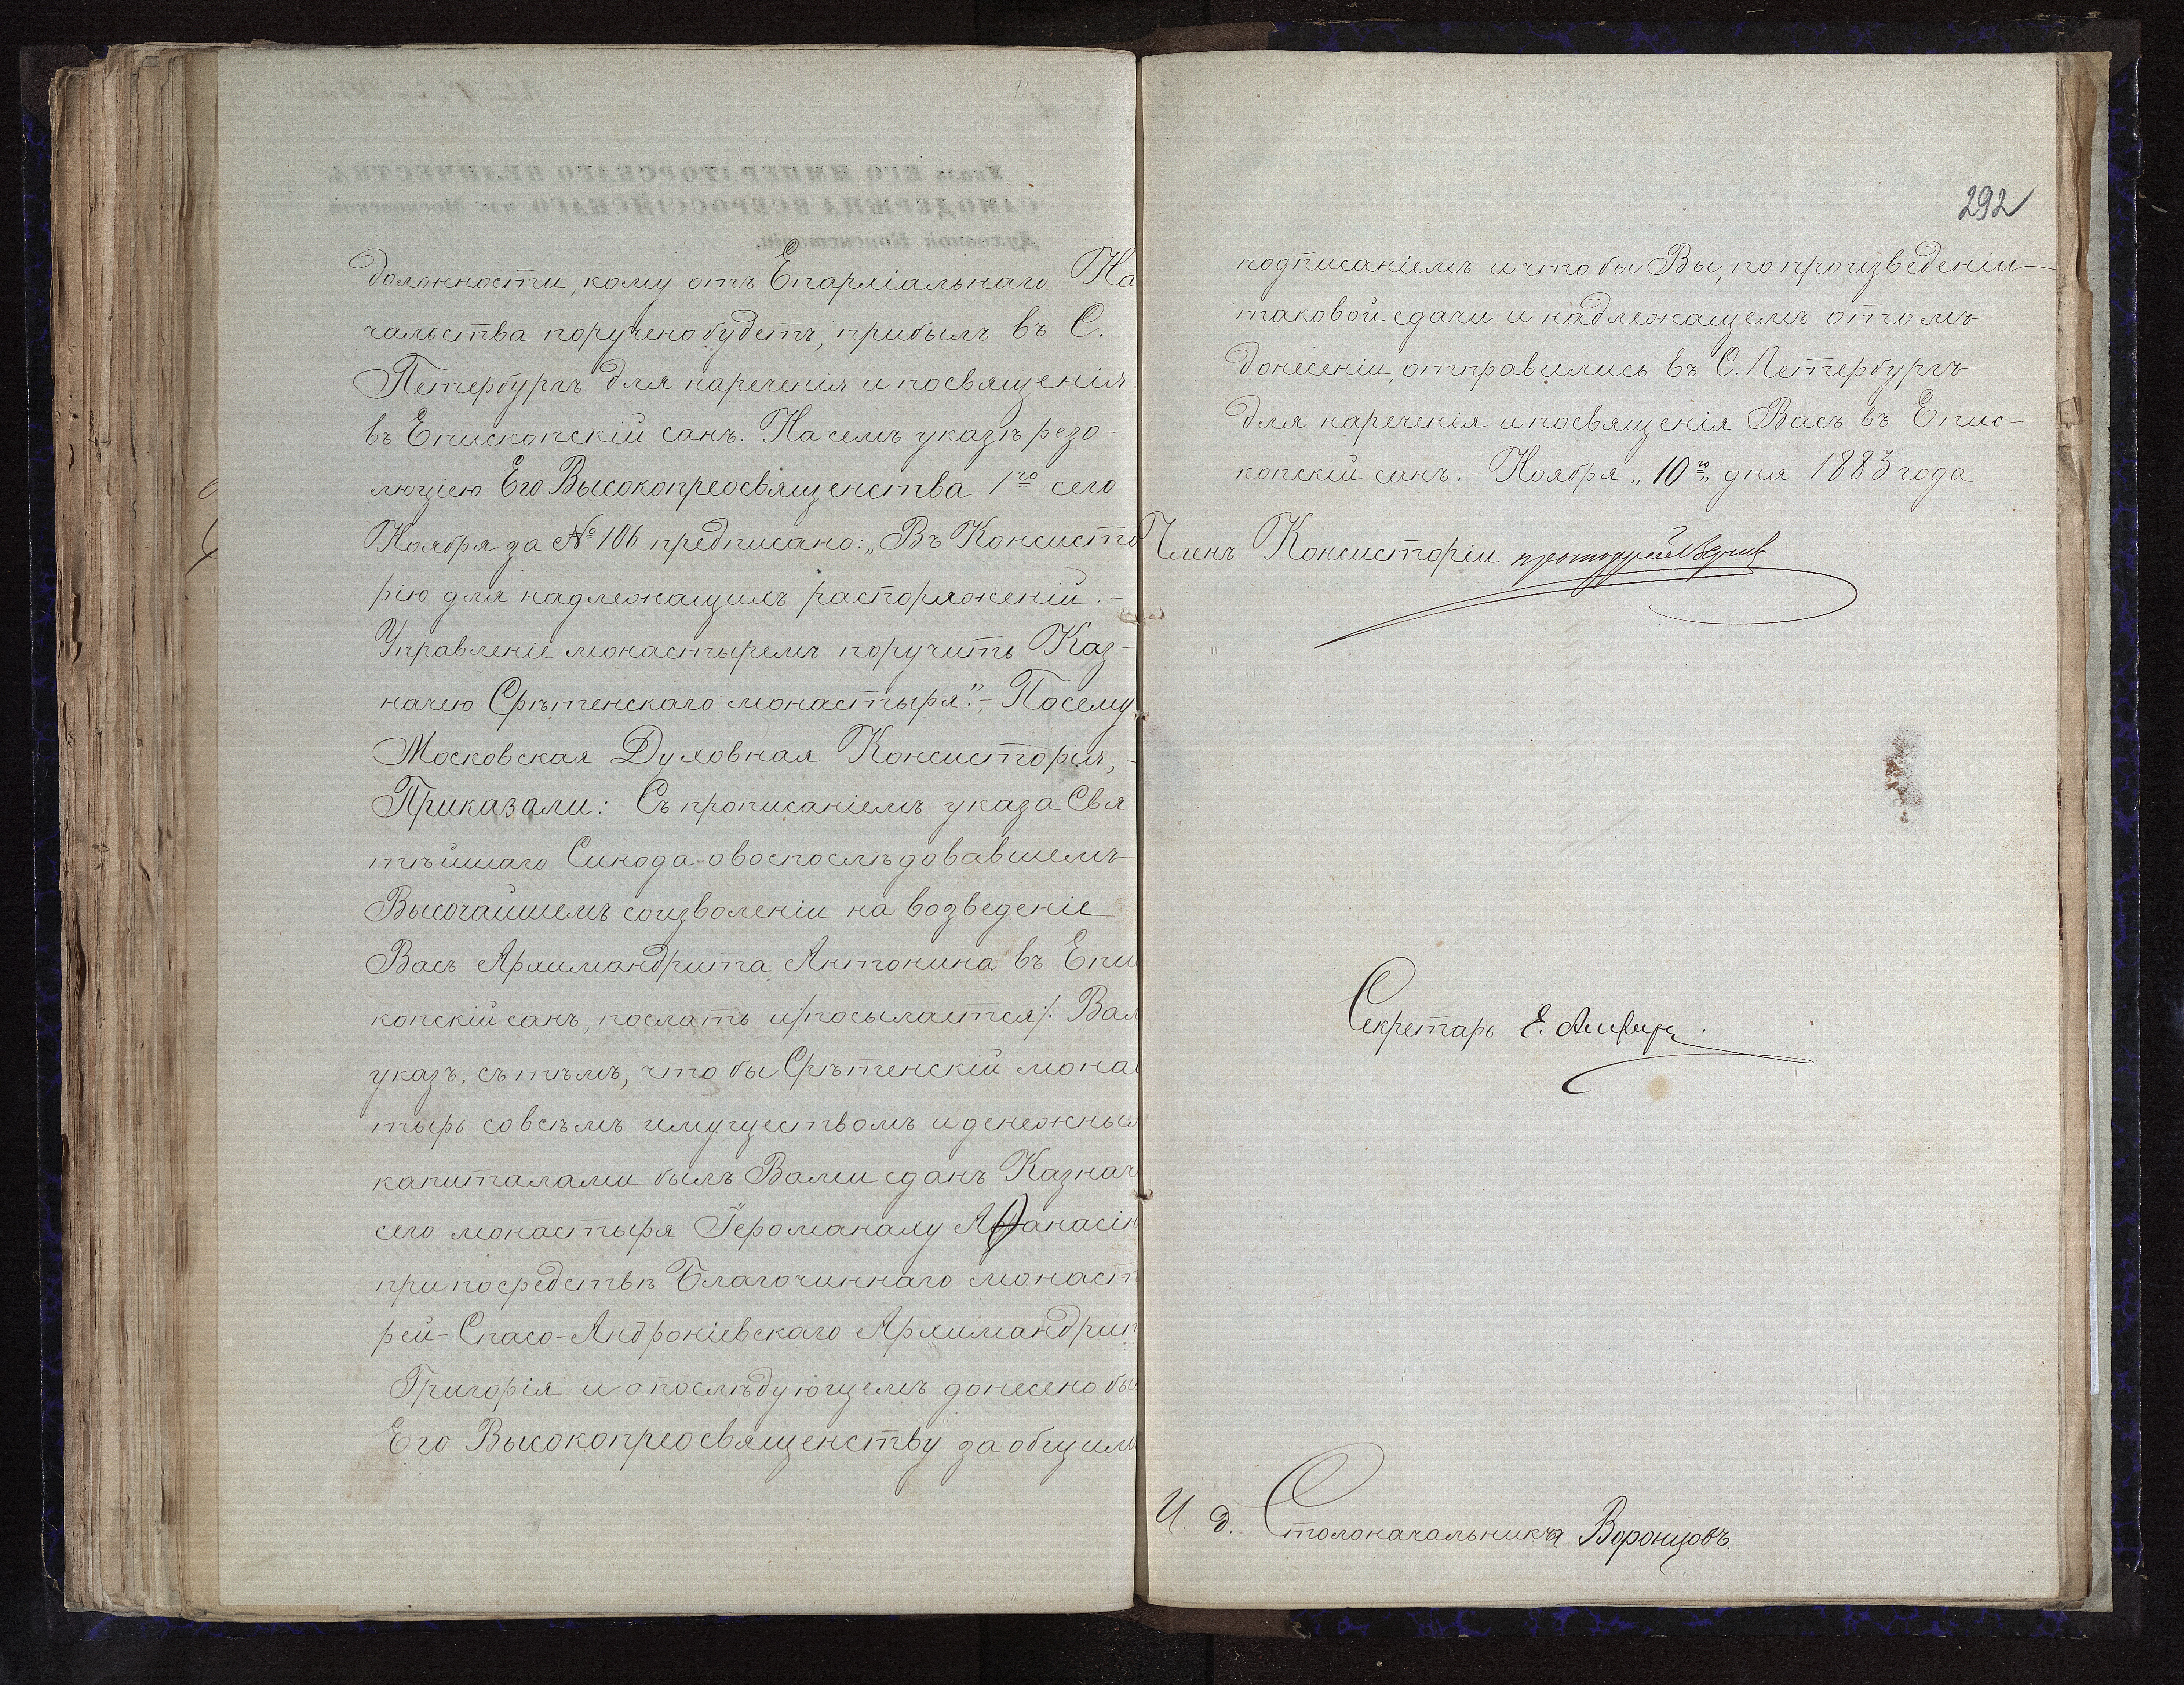 должности, кому отъ Епархіальнаго На
чальства поручено будетъ, прибылъ въ С.
Петербургъ для нареченія и посвященія
въ Епископскій санъ. На семъ указѣ резо-
люціею Его Высокопреосвященства 1го сего
Ноября за № 106 предписано: „Въ Консисто
рію для надлежащихъ распоряженій. -
Управленіе монастыремъ поручить Каз-
начею Срѣтенскаго монастыря". - Посему
Московская Духовная Консисторія, -
Приказали: Съ прописаніемъ указа Свя
тѣйшаго Синода - о воспослѣдовавшемъ
Высочайшемъ соизволеніи на возведеніе
Васъ Архимандрита Антонина въ Епи
копскій санъ, послать и /посылается/. Вам
указъ, съ тѣмъ, что бы Срѣтенскій мона
тырь со всѣмъ имуществомъ и денежны
капиталами былъ Вами сданъ Казнач
сего монастыря Іеромонаху Аѳанасію
при посредствѣ Благочиннаго монаст
рей - Спасо-Андроніевскаго Архимандри
Григорія и о послѣдующемъ донесено бы
Его Высокопреосвященству за общим
292
подписаніемъ и что бы Вы, по произведеніи
таковой сдачи и надлежащемъ о томъ
донесеніи, отправились въ С. Петербургъ
для нареченія и посвященія Васъ въ Епис-
копскій санъ. - Ноября „10го„ дня 1883 года
Членъ Консисторіи протоіерей
Секретарь Е.
И. д. Столоначальника Воронцовъ.